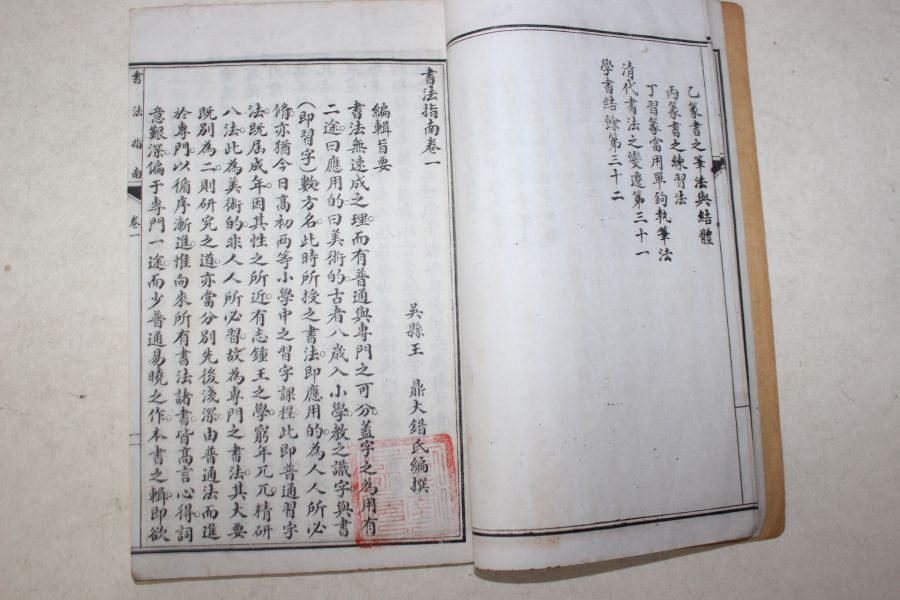 乙篆書之筆法與結體
丙篆書之練習法
丁習篆當用單鉤執筆法
清代書法之變遷第三十一
學書結餘第三十二
書法指南卷一
吳縣王　鼎大錯氏編撰
編輯旨要
書法無速成之理。而有普通與專門之可分。蓋字之為用有
二途。曰應用的。曰美術的。古者八歲入小學。教之識字與書
(即習字)數方名。此時所授之書法。即應用的。為人人所必
脩。亦猶今日高初兩等小學中之習字課程。此即普通習字
法。既屆成年。因其性之所近。有志鍾王之學。窮年兀兀。精研
八法。此為美術的。非人人所必習。故為專門之書法。其大要
既別為二。則研究之道。亦當分別先後淺深。由普通法而進
於專門。以循序漸進。惟向來所有書法諸書。皆高言心得。詞
意艱深。偏于專門一途。而少普通易曉之作。本書之輯。即欲
書法指南
卷一